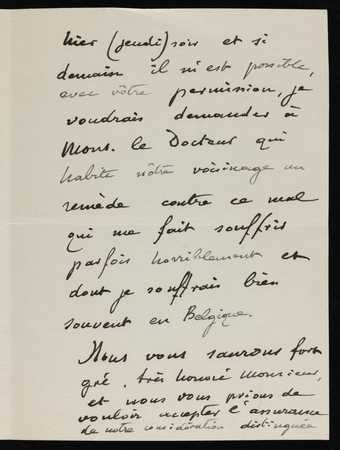 hier (jeudi) soir et si
demain il m'est possible,
avec vôtre permission, je
voudrais demander à
Mons. le Docteur qui
habite nôtre voisinage un
remède contre ce mal
qui me fait souffrir
parfois horriblement et
dont je souffrais bien
souvent en Belgique.
Nous vous saurons fort
gré, très honoré Monsieur,
et nous vous prions de
vouloir accepter l'assurance
de notre considération distinguée